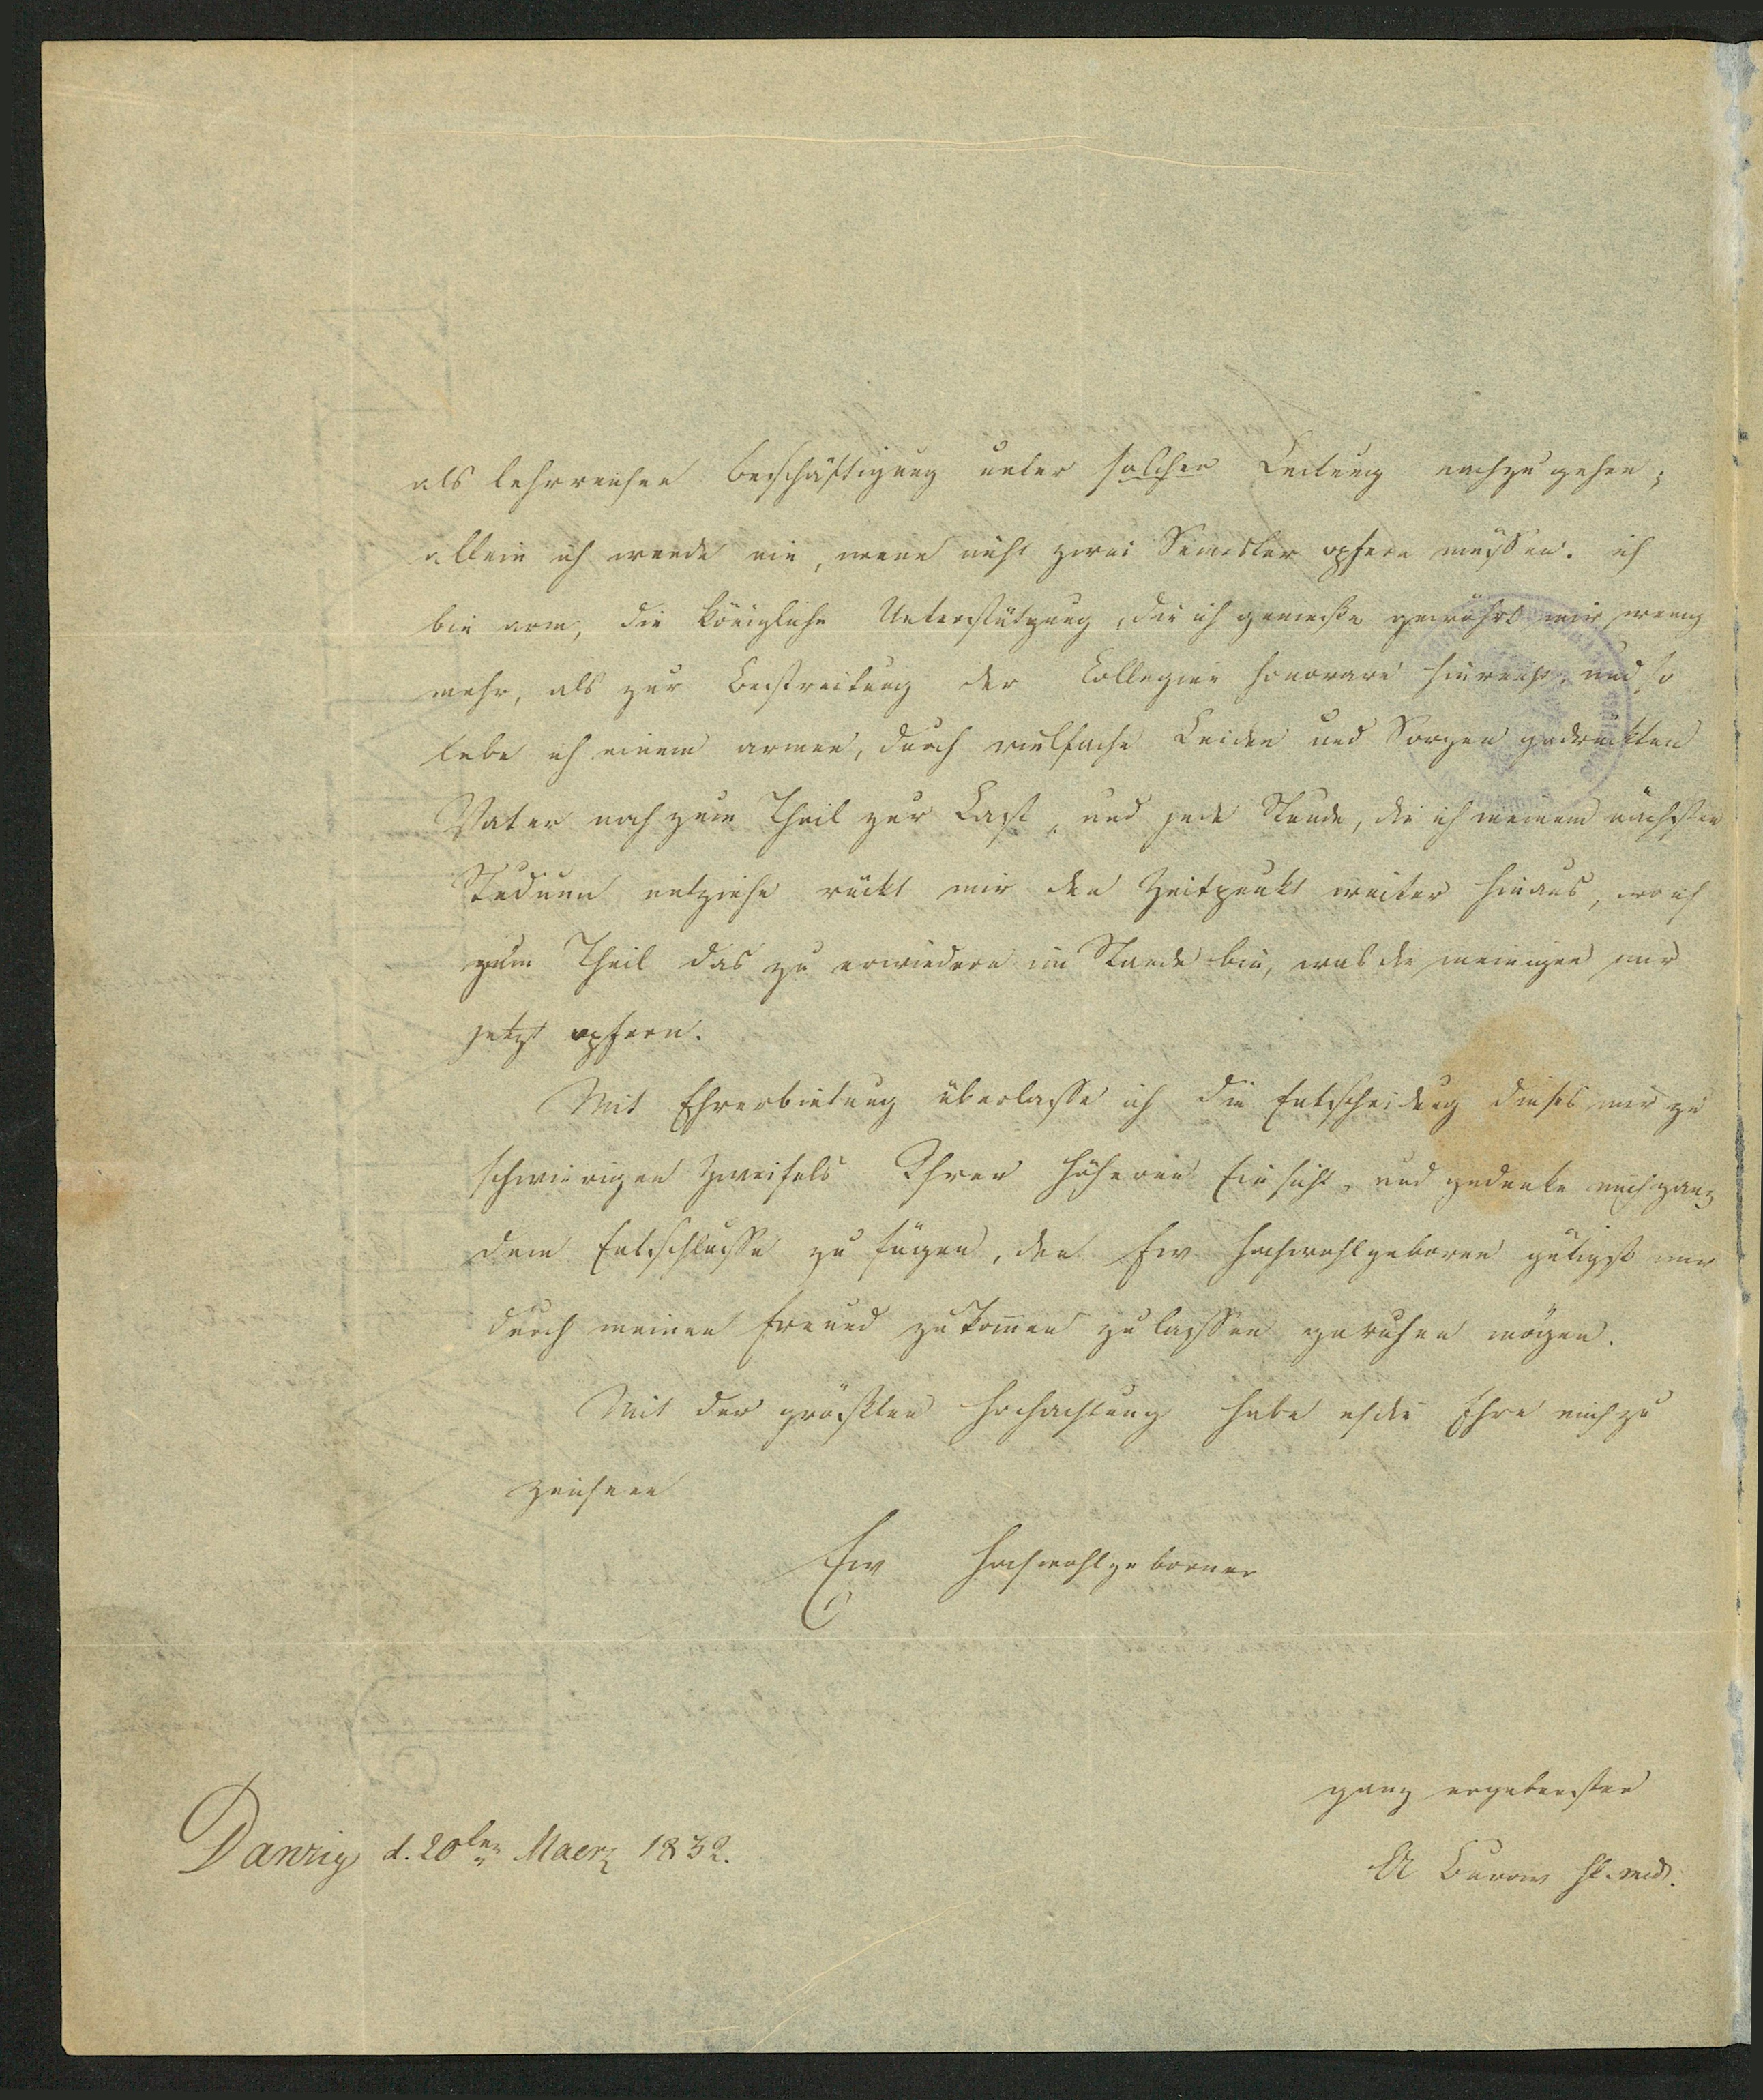 als lehrreichen Beschäftigung unter solcher Leitung nachzugehen;
allein ich werde ein, wenn nicht zwei Semester opfern müssen. ich
bin arm, die Königliche Unterstützung, die ich genieße gewährt mir wenig
mehr, als zur Bestreitung der Collegien honorare hinreicht, und so
lebe ich einem armen, durch vielfache Leiden und Sorgen gedrückten
Vater noch zum Theil zur Last, und jede Stunde, die ich meinem nächsten
Studium entziehe rückt mir den Zeitpunkt weiter hinaus, wo ich
zum Theil das zu erwiedern im Stande bin, was die meinigen mir
jetzt opfern.
Mit Ehrerbietung überlasse ich die Entscheidung dieses mir zu
schwierigen Zweifels Ihrer höheren Einsicht, und gedenke mich ganz
dem Entschlusse zu fügen, den Ew Hochwohlgeboren gütigst mir
durch meinen Freund zukommen zu lassen geruhen mögen.
Mit der größten Hochachtung habe ich die Ehre mich zu
zeichnen
Ew Hochwohlgeboren
ganz ergebenster
A Burow st. med.
Danzig d. 20ten Maerz 1832.